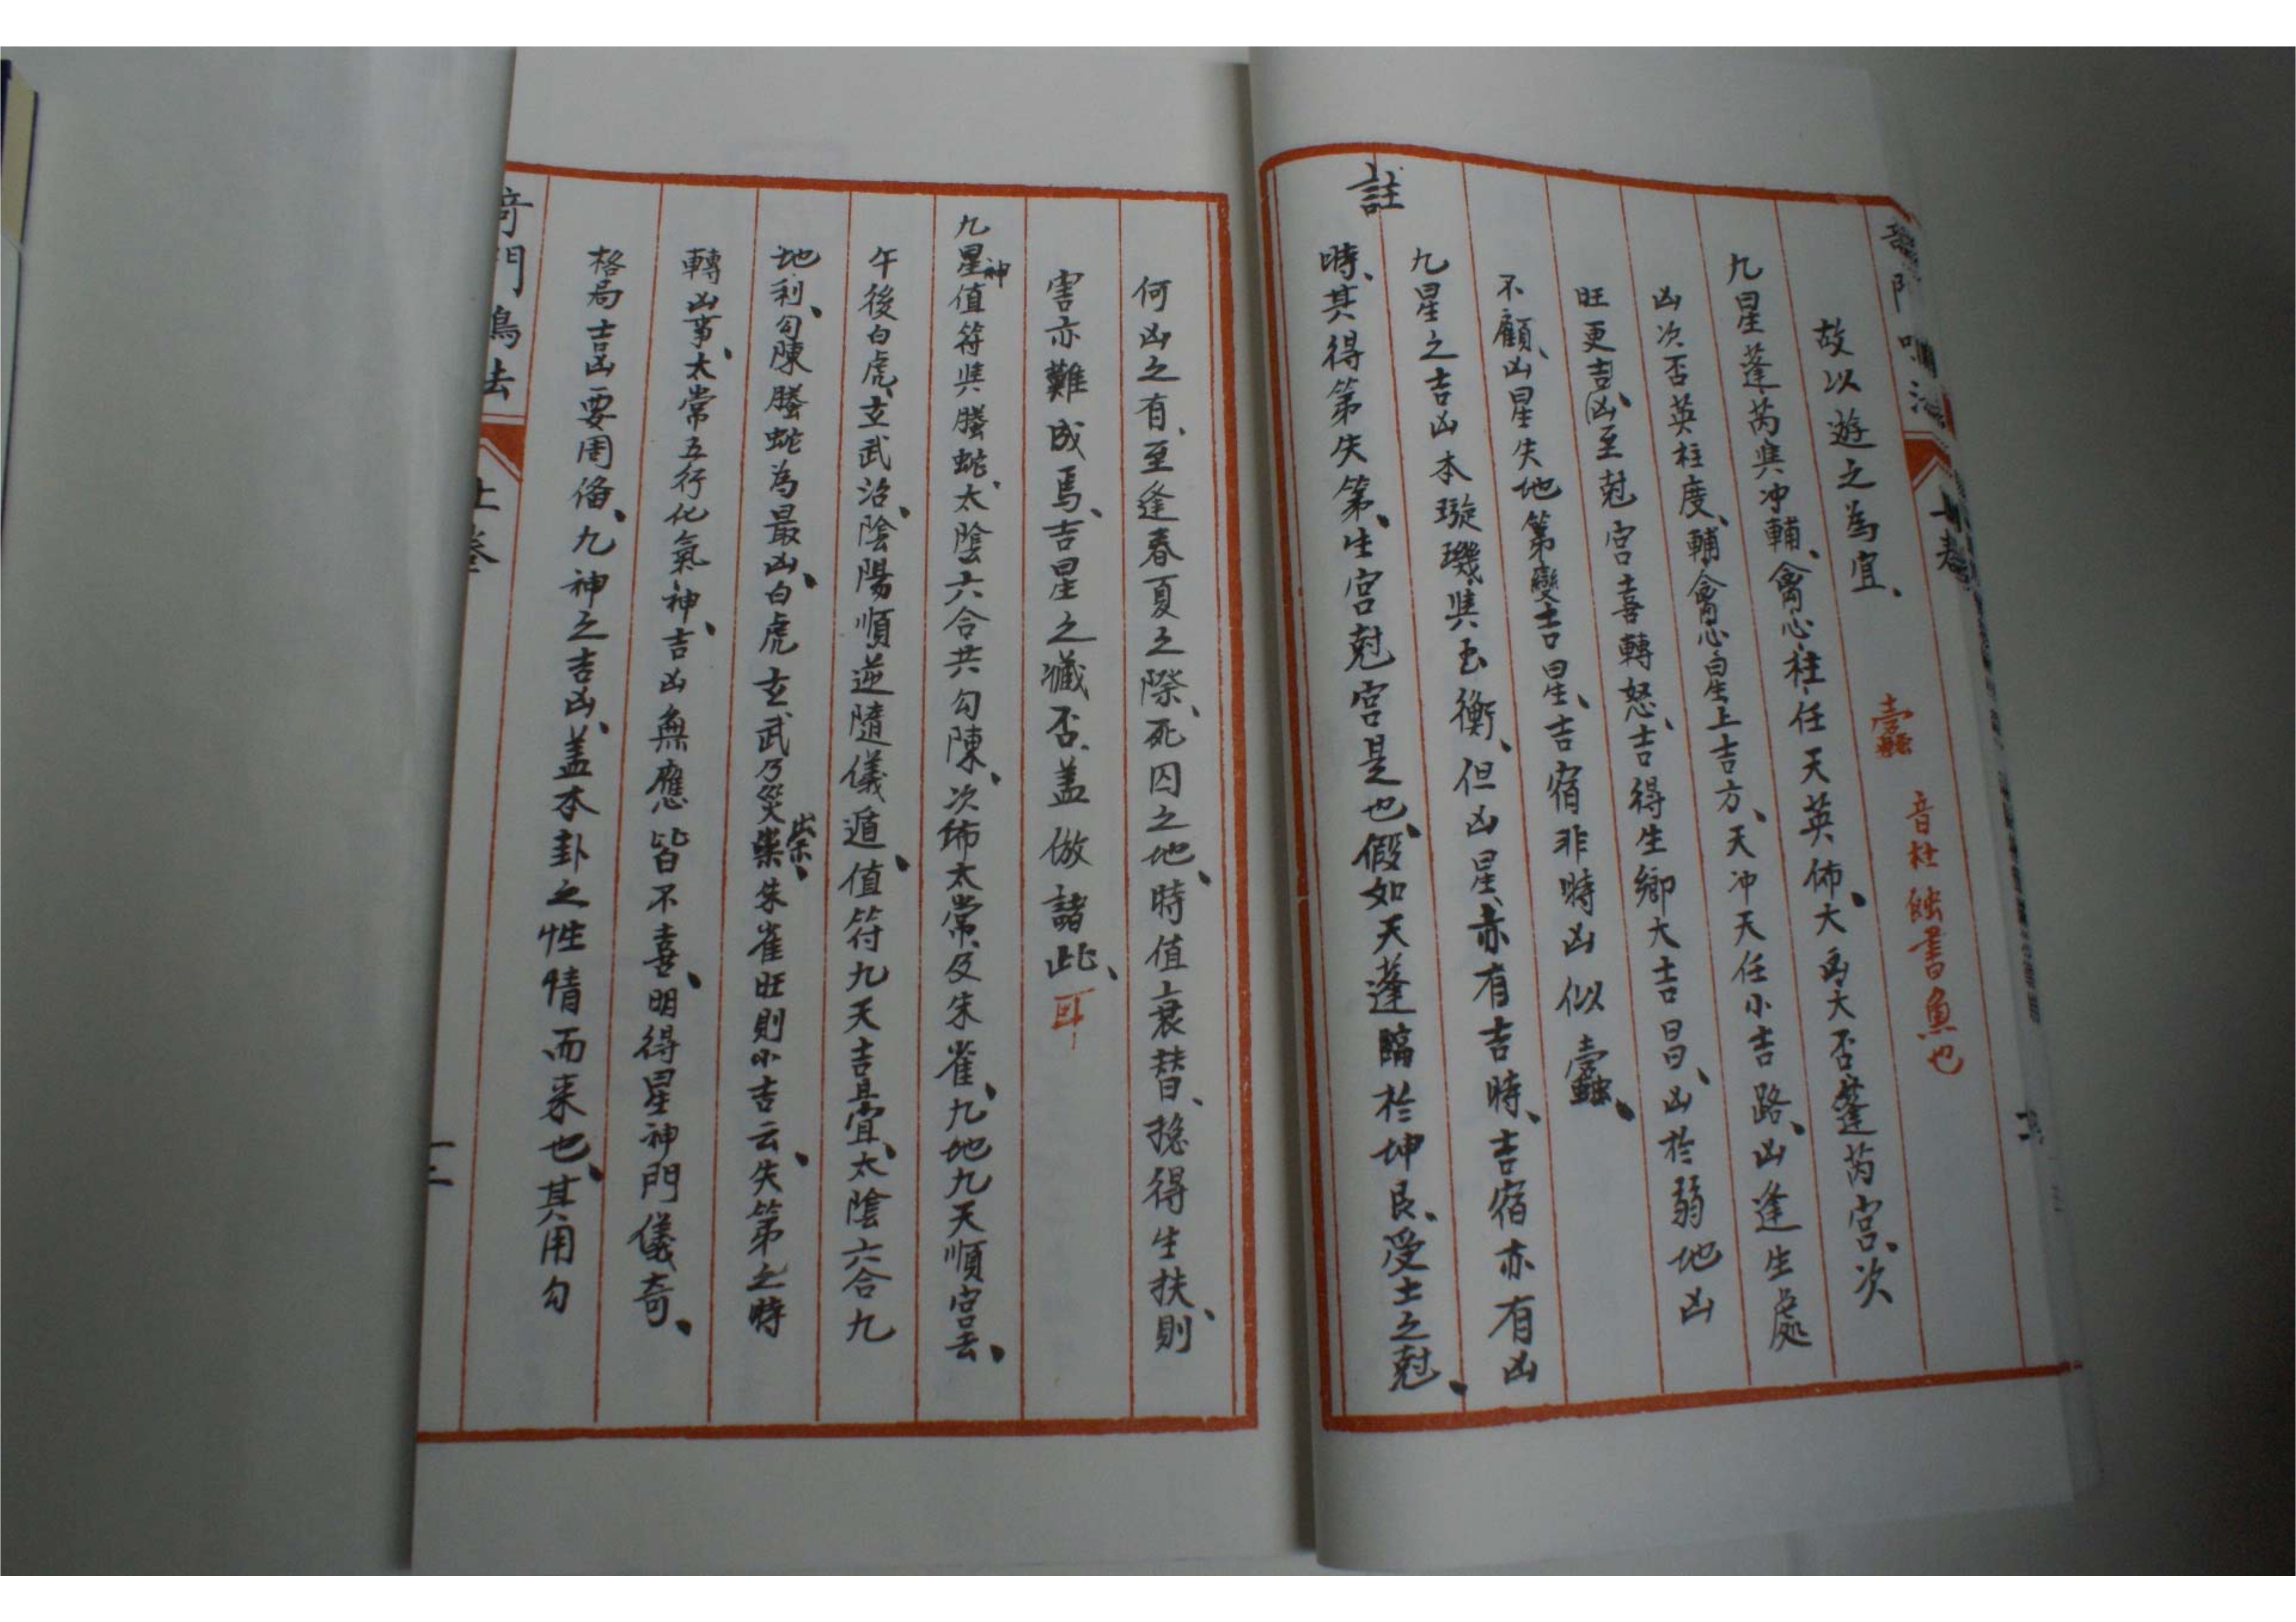 故以遊之為宜、
蠹
音杜蝕書魚也
九星蓬芮與冲輔、禽心柱任天英佈、大凶大否蓬芮宮、次
凶次否英柱度、輔禽心星上吉方、天冲天任小吉路、凶逢生處
旺更吉凶、至尅宮喜轉怒、吉得生鄉大吉昌、凶於弱地凶
不顧、凶星失地第變吉星、吉宿非時凶似蠹、
註
九星之吉凶本璇璣、與玉衡、但凶星、亦有吉時、吉宿亦有凶
時、其得第失第、生宮尅宮是也、假如天蓬臨於坤艮、受土之尅、
何凶之有、至逢春夏之際、死囚之地、時值衰替、揔得生扶、則
害亦難成焉、吉星之臧否、盖倣諸此、耳
九星神值符與螣蛇、太陰六合共勾陳、次佈太常、及朱雀、九地九天順宮去、
午後白虎、玄武治、陰陽順逆隨儀遁、值符九天吉且宜、太陰六合九
地利、勾陳螣蛇為最凶、白虎玄武乃災祟、朱雀旺則小吉云、失第之時
轉凶事、太常五行化氣神、吉凶無應皆不喜、明得星神門儀奇、
格局吉凶要周俻、九神之吉凶、盖本卦之性情而来也、其用勾
奇門鳴法
上卷
十二